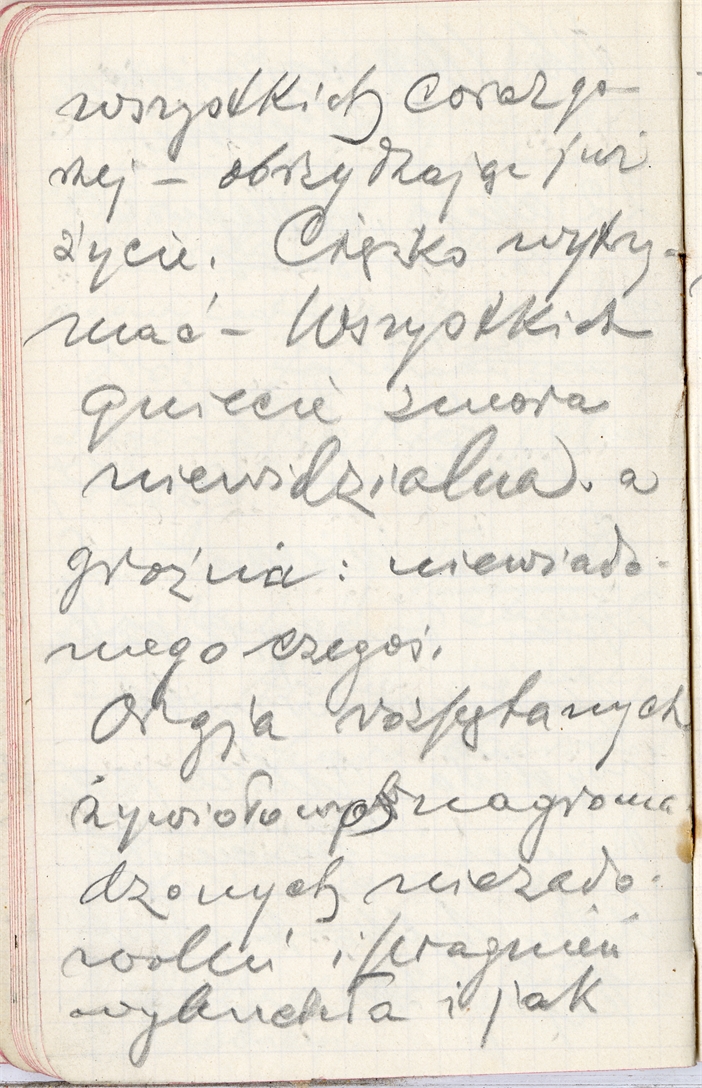 wszystkich coraz go-
rzej – obrzydzając już
życie. Ciężko wytrzy-
mać – Wszystkich
gniecie zmora
niewidzialna. a
groźna: niewiado-
mego czegoś.
Orgja rozpętanych
żywiołowych nagroma-
dzonych niezado-
woleń i pragnień
wybuchła i jak